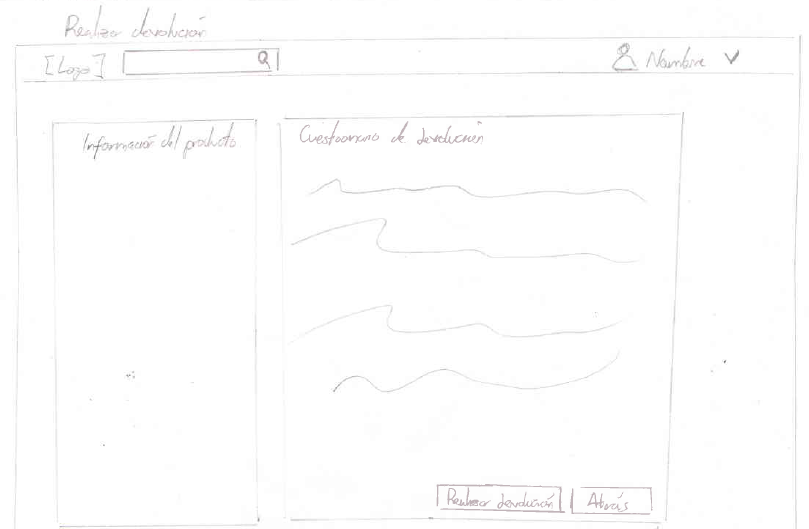 Realizar devolución
[Logo]
Nombre
Información del producto
Cuestionario de devolución
Realizar devolución
Atrás